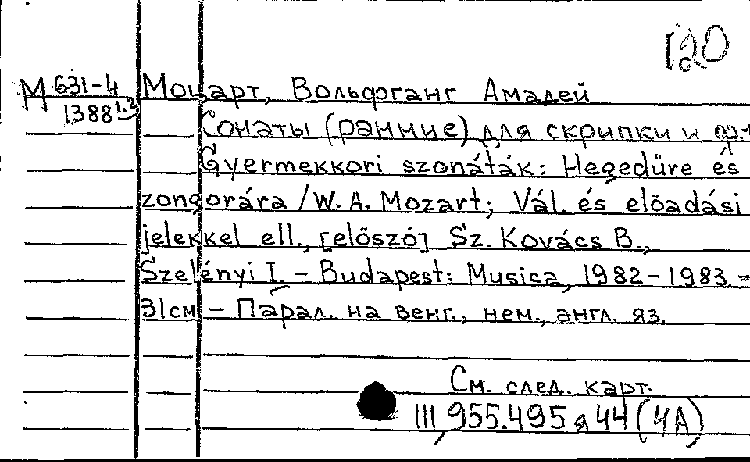 120
М 631-4 Моцарт, Вольфганг Амадей
1388 1.2
Сонаты (ранние) для скрипки и фп.
Gyermekkori szonáták: Hegedüre és
zongorára / W. A. Mozart; Vál. és előadási
jelekkel ell., [előszó] Sz. Kovács B.,
Szelényi I. - Budapest: Musica, 1982-1983 =
31см - Парал. на венг., нем., англ. яз.
См. след. карт.
III, 955.495 я 44 (4А)